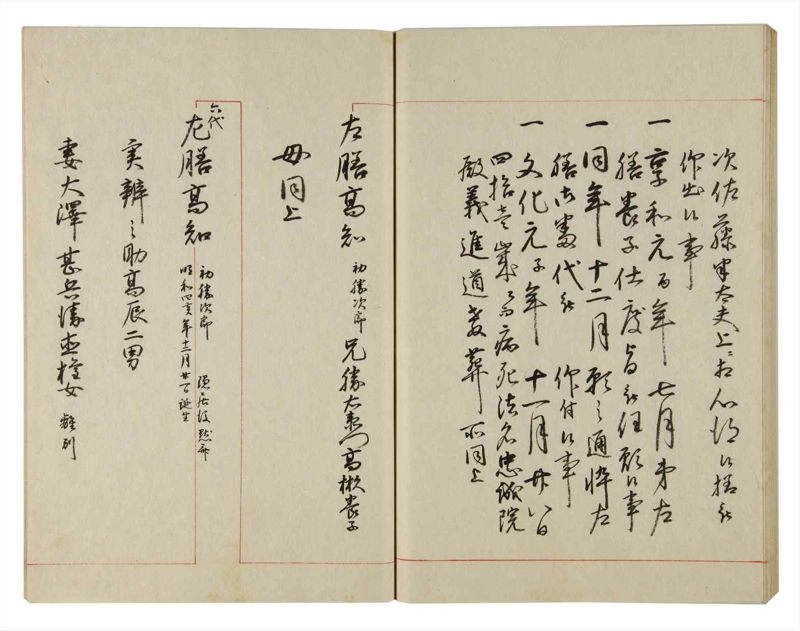 次佐藤太夫上ニ相心得候様被
仰出候事
一 享和元酉年七月弟左
膳養子仕度旨被任願候事
一 同年十二月願之通悴左
膳御番代被 仰付候事
一 文化元子年十一月廿八日
四拾壱歳ニ而病死法名忠誠院
殿義進道葬所同上
左膳高知 初勝次郎 兄勝右衛門高楙養子
母同上
六代
左膳高知 初勝次郎 隠居後黙斎
明和四亥年十二月廿日誕生
実辨之助高辰二男
妻大澤甚兵衛直女 離別